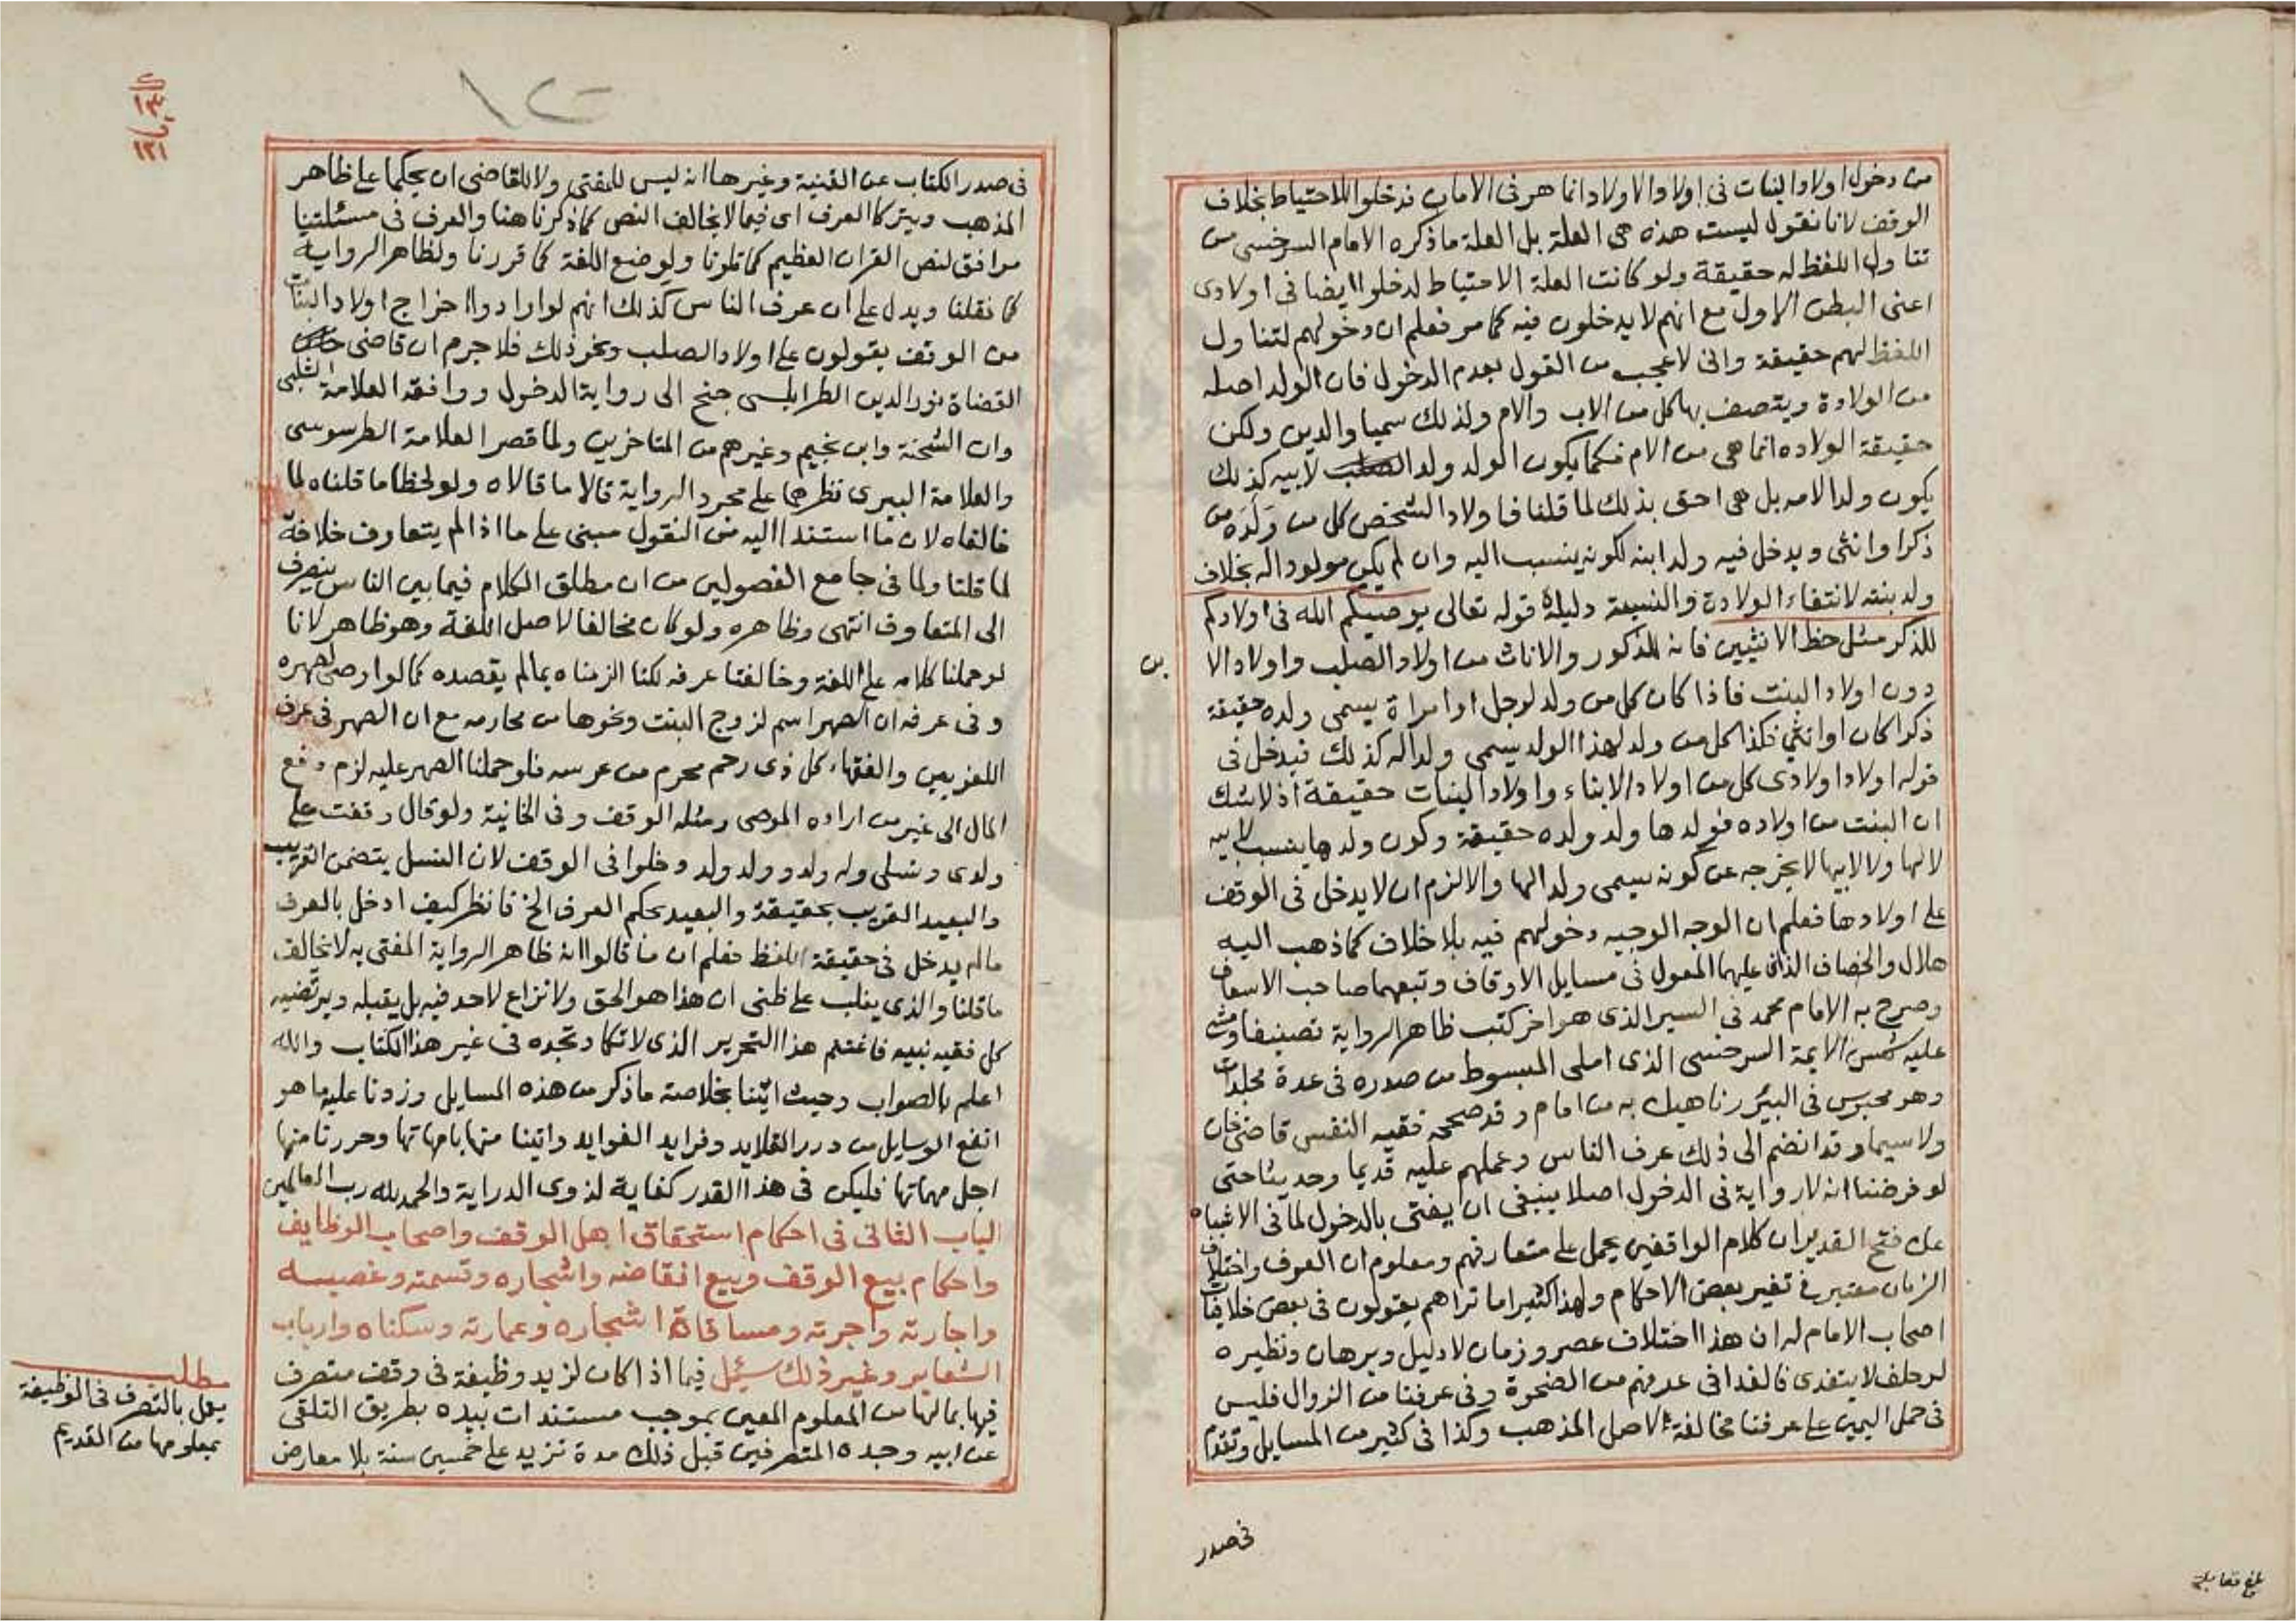 من دخول اولاد البنات فى اولاد الاولاد انما هو فى الامان فدخلوا للاحتياط بخلاف
الوقف لانا نقول ليست هذه هى العلة بل العلة ما ذكره الامام السرخسى من
تناول اللفظ له حقيقة ولو كانت العلة الاحتياط لدخلوا ايضا فى اولادى
اعنى البطن الاول مع انهم لا يدخلون فيه كما مر فعلم ان دخولهم لتناول
اللفظ لهم حقيقة وانى لاعجب من القول بعدم الدخول فان الولد اصله
من الولادة ويتصف بها كل من الاب والام ولذلك سميا والدين ولكن
حقيقة الولاده انما هى من الام فكما يكون الولد ولد الصلب لابيه كذلك
يكون ولدا لامه بل هى احق بذلك لما قلنا فاولاد الشخص كل من ولده من
ذكرا وانثى ويدخل فيه ولد ابنه لكونه ينسب اليه وان لم يكن مولودا له بخلاف
ولد بنته لانتفاء الولادة والنسبة دليله قوله تعالى يوصيكم الله فى اولادكم
للذكر مثل حظ الانثيين فانه للذكور والاناث من اولاد الصلب واولاد الا
بن
دون اولاد البنت فاذا كان كل من ولد لرجل او امراة يسمى ولده حقيقة
ذكرا كان او انثى فكذا كل من ولد لهذا الولد يسمى ولدا له كذلك فيدخل فى
قوله اولاد اولادى كل من اولاد الابناء واولاد البنات حقيقة اذ لا شك
ان البنت من اولاده فولدها ولد ولده حقيقة وكون ولدها ينسب لابيه
لا لها ولا لابيها لا يخرجه عن كونه يسمى ولدا لها والا لزم ان لا يدخل فى الوقف
على اولادها فعلم ان الوجه الوجيه دخولهم فيه بلا خلاف كما ذهب اليه
هلال والخصاف الذان عليهما المعول فى مسايل الاوقاف وتبعهما صاحب الاسعاف
وصرح به الامام محمد فى السير الذى هو اخر كتب ظاهر الرواية تصنيفا ومشى
عليه شمس الايمة السرخسى الذى املى المبسوط من صدره فى عدة مجلدات
وهو محبوس فى البير وناهيك به من امام وقد صححه فقيه النفس قاضى خان
ولا سيما وقد انضم الى ذلك عرف الناس وعملهم عليه قديما وحديثا حتى
لو فرضنا انه لا رواية فى الدخول اصلا ينبغى ان يفتى بالدخول لما فى الاشباه
عن فتح القدير ان كلام الواقفين يحمل على متعارفهم ومعلوم ان العرف واختلاف
الزمان معتبر فى تغير بعض الاحكام ولهذا كثيرا ما تراهم يقولون فى بعض خلافيات
اصحاب الامام له ان هذا اختلاف عصر وزمان لا دليل وبرهان ونظيره
لو حلف لا يتغدى فالغدا فى عرفهم من الضحوة وفى عرفنا من الزوال فليس
فى حمل اليمين على عرفنا مخالفة لاصل المذهب وكذا فى كثير من المسايل وتقدم
فى صدر
بلغ مقابلة
فى صدر الكتاب عن القنية وغيرها انه ليس للمفتى ولا للقاضى ان يحكما على ظاهر
المذهب ويتركا العرف اى فيما لا يخالف النص كما ذكرنا هنا والعرف فى مسئلتنا
موافق لنص القران العظيم كما تلونا ولوضع اللغة كما قررنا ولظاهر الرواية
كما نقلنا ويدل على ان عرف الناس كذلك انهم لو ارادوا اخراج اولاد البنات
من الوقف يقولون على اولاد الصلب ونحو ذلك فلا جرم ان قاضى
القضاة نور الدين الطرابلسى جنح الى رواية الدخول ووافقه العلامة الشلبى
وابن الشحنة وابن نجيم وغيرهم من المتاخرين ولما قصر العلامة الطرسوسى
والعلامة البيرى نظرهما على مجرد الرواية قالا ما قالاه ولو لحظا ما قلناه لما
خالفاه لان ما استندا اليه من النقول مبنى على ما اذا لم يتعارف خلافه
لما قلنا ولما فى جامع الفصولين من ان مطلق الكلام فيما بين الناس ينصرف
الى المتعارف انتهى وظاهره ولو كان مخالفا لاصل اللغة وهو ظاهر لانا
لو حملنا كلامه على اللغة وخالفنا عرفه لكنا الزمناه بما لم يقصده كما لو اوصى لصهره
وفى عرفه ان الصهر اسم لزوج البنت ونحوها من محارمه مع ان الصهر فى عرف
اللغويين والفقهاء كل ذى رحم محرم من عرسه فلو حملنا الصهر عليه لزم دفع
المال الى غير من اراده الموصى ومثله الوقف وفى الخانية ولو قال وقفت على
ولدى ونسلى وله ولد وولد ولد دخلوا فى الوقف لان النسل يتضمن القريب
والبعيد القريب بحقيقة والبعيد بحكم العرف الخ فانظر كيف ادخل بالعرف
ما لم يدخل فى حقيقة اللفظ فعلم ان ما قالوا انه ظاهر الرواية المفتى به لا يخالف
ما قلنا والذى يغلب على ظنى ان هذا هو الحق ولا نزاع لاحد فيه بل يقبله ويرتضيه
كل فقيه نبيه فاغتنم هذا التحرير الذى لا تكاد تجده فى غير هذا الكتاب والله
اعلم بالصواب وحيث اتينا بخلاصة ما ذكر من هذه المسايل وزدنا عليه ما هو
انفع الوسايل من درر القلايد وفرايد الفوايد واتينا منها بامهاتها وحررنا منها
اجل مهماتها فليكن فى هذا القدر كفاية لذوى الدراية والحمد لله رب العالمين
الباب الثانى فى احكام استحقاق اهل الوقف واصحاب الوظايف
واحكام بيع الوقف وبيع انقاضه واشجاره وقسمته وغصبه
واجارته واجرته ومساقاة اشجاره وعمارته وسكناه وارباب
الشعاير وغير ذلك سئل فيما اذا كان لزيد وظيفة فى وقف متصرف
فيها بما لها من المعلوم المعين بموجب مستندات بيده بطريق التلقى
عن ابيه وجده المتصرفين قبل ذلك مدة تزيد على خمسين سنة بلا معارض
مطلب
يعمل بالتصرف فى الوظيفة
بمعلومها من القديم